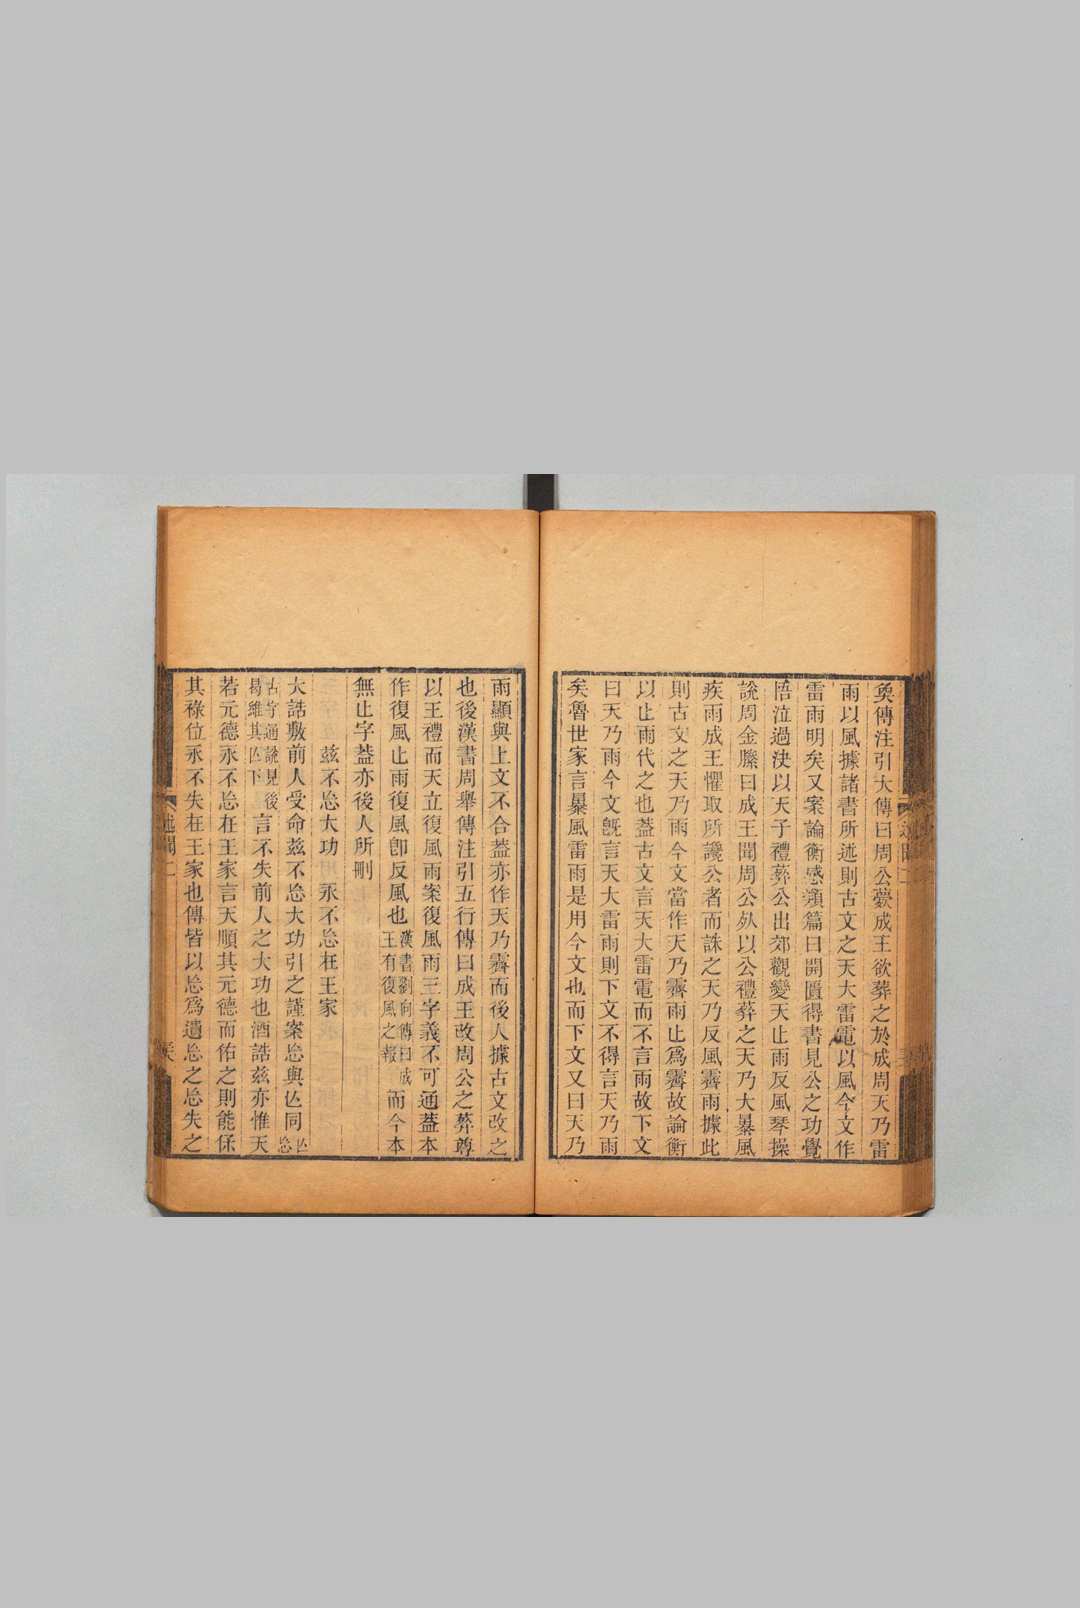 奐傳注引大傳曰周公薨成王欲葬之於成周天乃雷
雨以風據諸書所述則古文之天大雷電以風今文作
雷雨明矣又案論衡感類篇曰開匱得書見公之功覺
悟泣過決以天子禮葬公出郊觀變天止雨反風琴操
說周金縢曰成王聞周公死以公禮葬之天乃大暴風
疾雨成王懼取所讒公者而誅之天乃反風霽雨據此
則古文之天乃雨今文當作天乃霽雨止爲霽故論衡
以止雨代之也蓋古文言天大雷電而不言雨故下文
曰天乃雨今文旣言天大雷雨則下文不得言天乃雨
矣魯世家言暴風雷雨是用今文也而下文又曰天乃
雨顯與上文不合蓋亦作天乃霽而後人據古文改之
也後漢書周舉傳注引五行傳曰成王改周公之葬尊
以王禮而天立復風雨案復風雨三字義不可通蓋本
作復風止雨復風卽反風也漢書劉向傳曰成王有復風之報而今本
無止字蓋亦後人所刪
茲不忘大功 永不忘在王家
大誥敷前人受命茲不忘大功引之謹案忘與亾同亾忘
古字通說見後曷維其亾下言不失前人之大功也酒誥茲亦惟天
若元德永不忘在王家言天順其元德而佑之則能保
其祿位永不失在王家也傳皆以忘爲遺忘之忘失之
述聞二